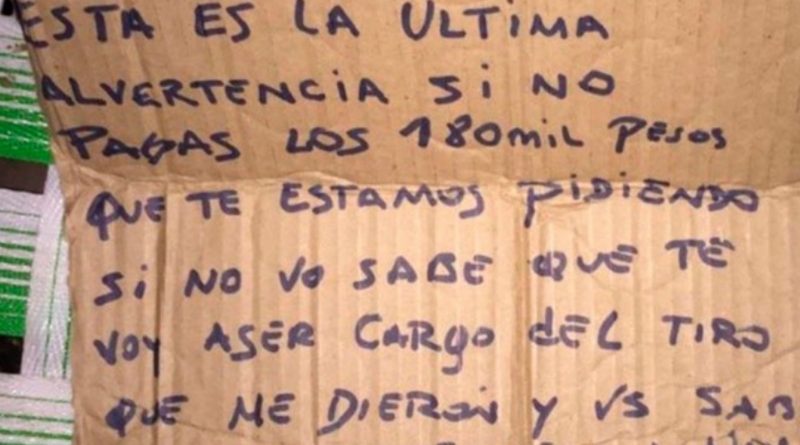 ESTA ES LA ULTIMA
ALVERTENCIA Si NO
PAGAS LOS 180MiL PESOS
QUE TE ESTAMOS PIDIENDO
Si NO VO SABE QUE TE
VOY ASER CARgO dEL TIRO
QUE ME DIERON Y VS SAB